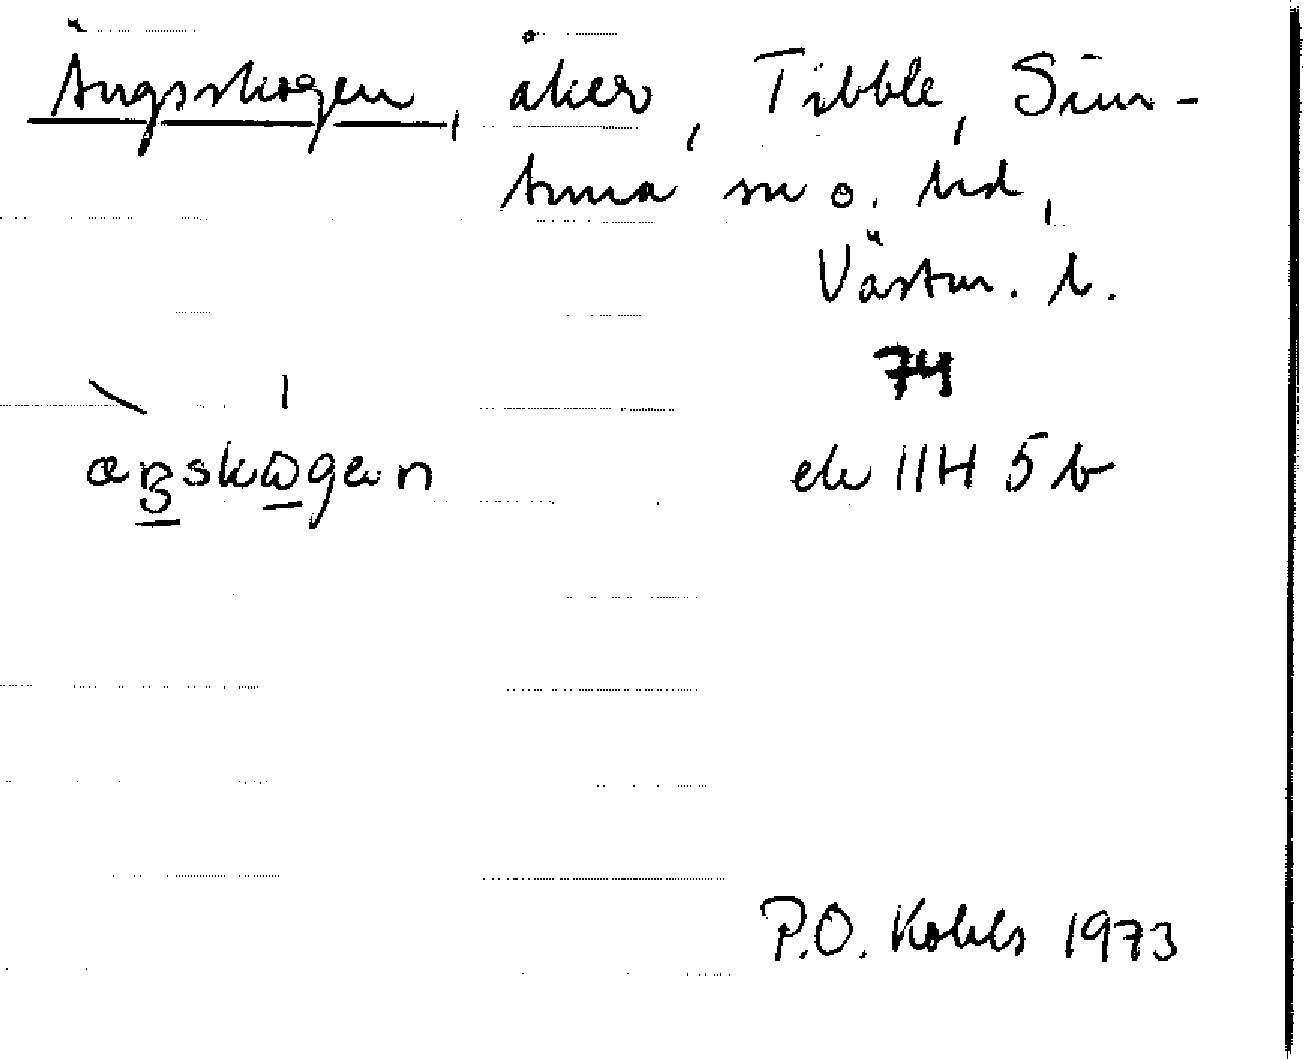 Ängsskogen, åker, Tibble, Sim-
tuna sn o. hd,
Västm. l.
74
ek 11H 5b
P.O. Kolks 1973